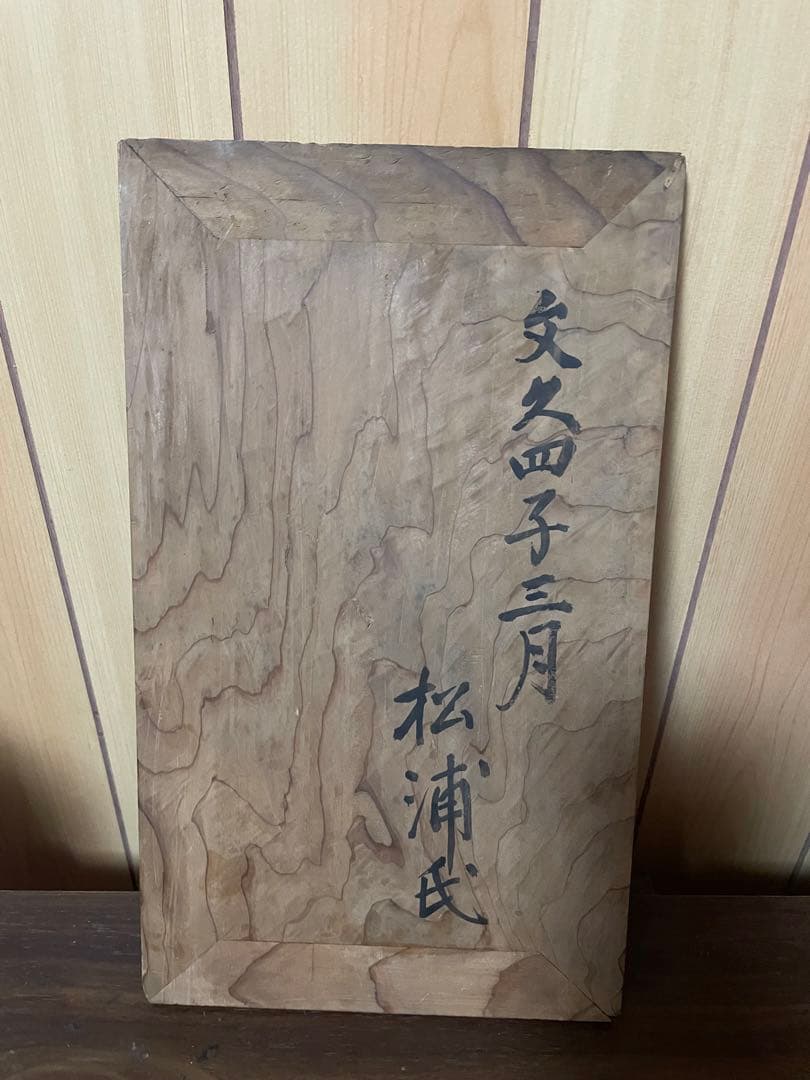 文久四子三月
松浦氏